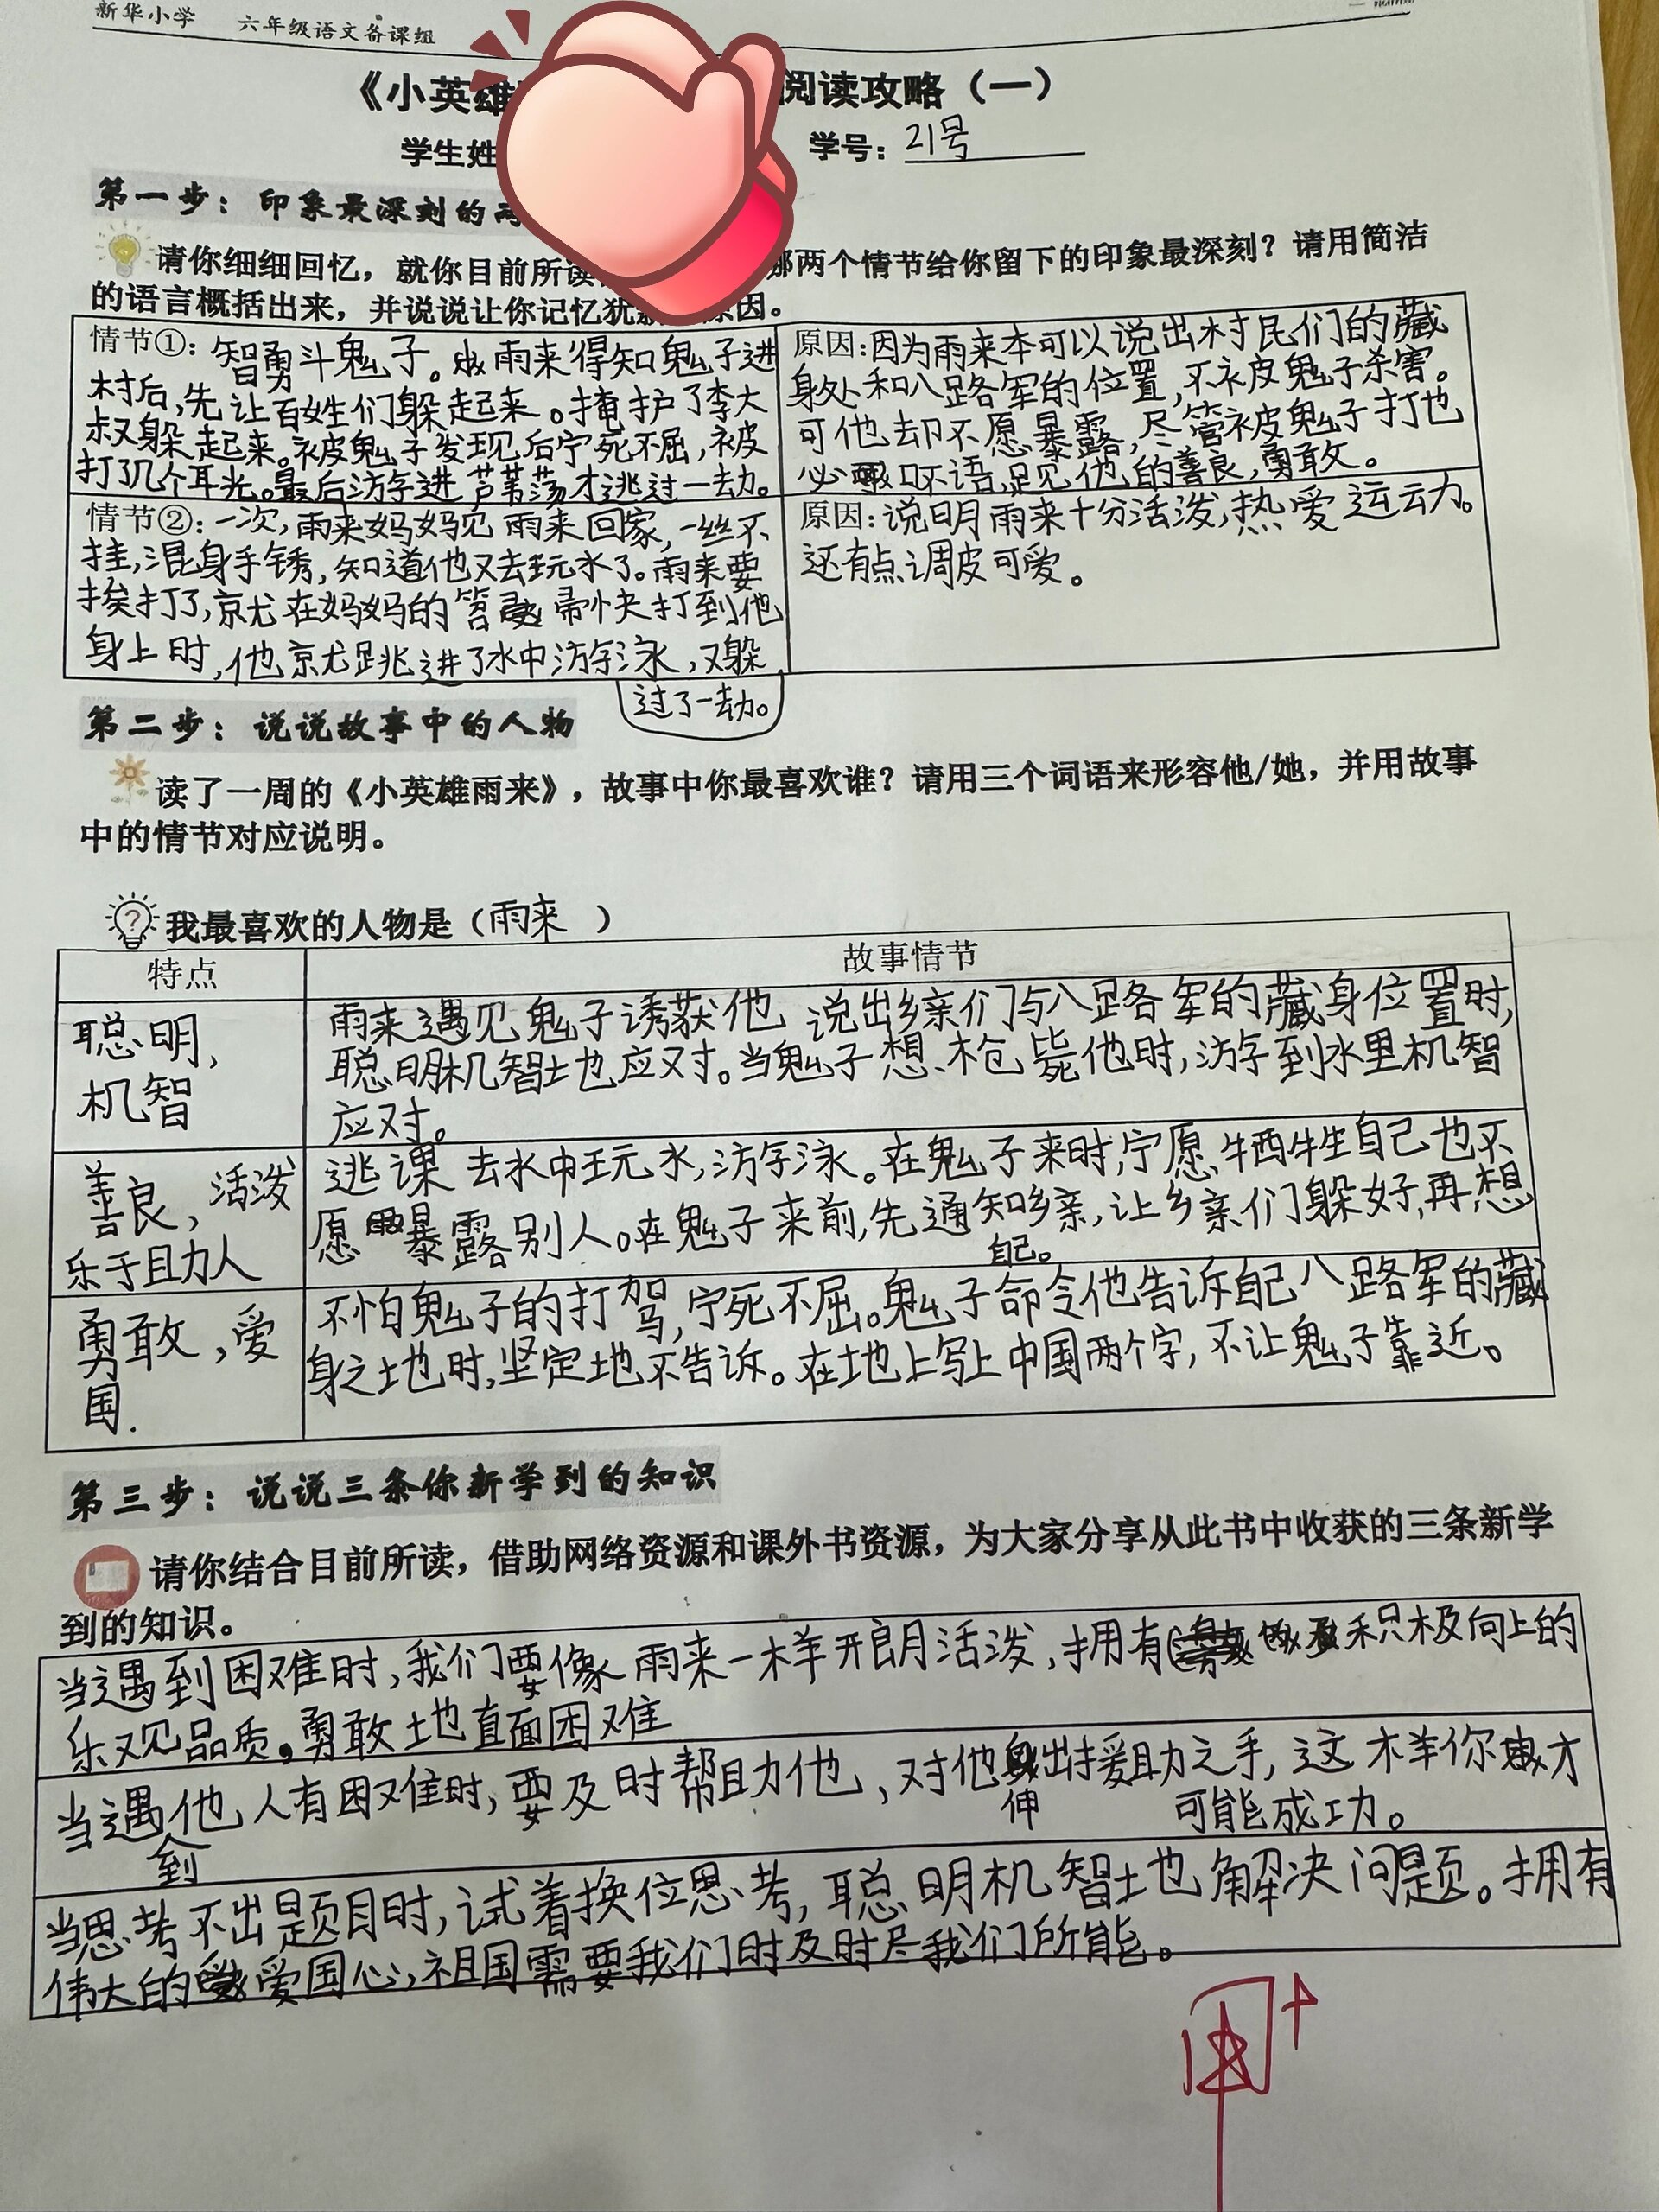 新华小学 六年级语文备课组
《小英雄 阅读攻略（一）
学生姓 学号：21号
第一步：印象最深刻的
请你细细回忆，就你目前所读 哪两个情节给你留下的印象最深刻？请用简洁
的语言概括出来，并说说让你记忆犹 原因。
情节①：智勇斗鬼子。雨来得知鬼子进
村后，先让百姓们躲起来。掩护了李大
叔躲起来。被鬼子发现后宁死不屈，被
打了几个耳光。最后游进芦苇荡才逃过一劫。
原因：因为雨来本可以说出村民们的藏
身处和八路军的位置，不被鬼子杀害。
可他却不愿暴露，尽管被鬼子打也
必 口不语，足见他的善良，勇敢。
情节②：一次，雨来妈妈见雨来回家，一丝不
挂，混身手锈，知道他又去玩水了。雨来要
挨打了，就在妈妈的笤 帚快打到他
身上时，他就跳进了水中游泳，又躲
过了一劫。
原因：说明雨来十分活泼，热爱运动。
还有点调皮可爱。
第二步：说说故事中的人物
读了一周的《小英雄雨来》，故事中你最喜欢谁？请用三个词语来形容他/她，并用故事
中的情节对应说明。
我最喜欢的人物是（雨来 ）
特点 故事情节
聪明，
机智
雨来遇见鬼子诱获他 说出乡亲们与八路军的藏身位置时，
聪明机智地应对。当鬼子想枪毙他时，游到水里机智
应对。
善良，活泼
乐于助人
逃课去水中玩水，游泳。在鬼子来时，宁愿牺牲自己也不
愿暴露别人。在鬼子来前，先通知乡亲，让乡亲们躲好，再想
自己。
勇敢，爱
国.
不怕鬼子的打骂，宁死不屈。鬼子命令他告诉自己八路军的藏
身之地时，坚定地不告诉。在地上写上中国两个字，不让鬼子靠近。
第三步：说说三条你新学到的知识
请你结合目前所读，借助网络资源和课外书资源，为大家分享从此书中收获的三条新学
到的知识。
当遇到困难时，我们要像雨来一样开朗活泼，拥有积极向上的
乐观品质，勇敢地直面困难
当遇到他人有困难时，要及时帮助他，对他伸出援助之手，这样你才
可能成功。
当思考不出题目时，试着换位思考，聪明机智地解决问题。拥有
伟大的爱国心，祖国需要我们时及时尽我们所能。